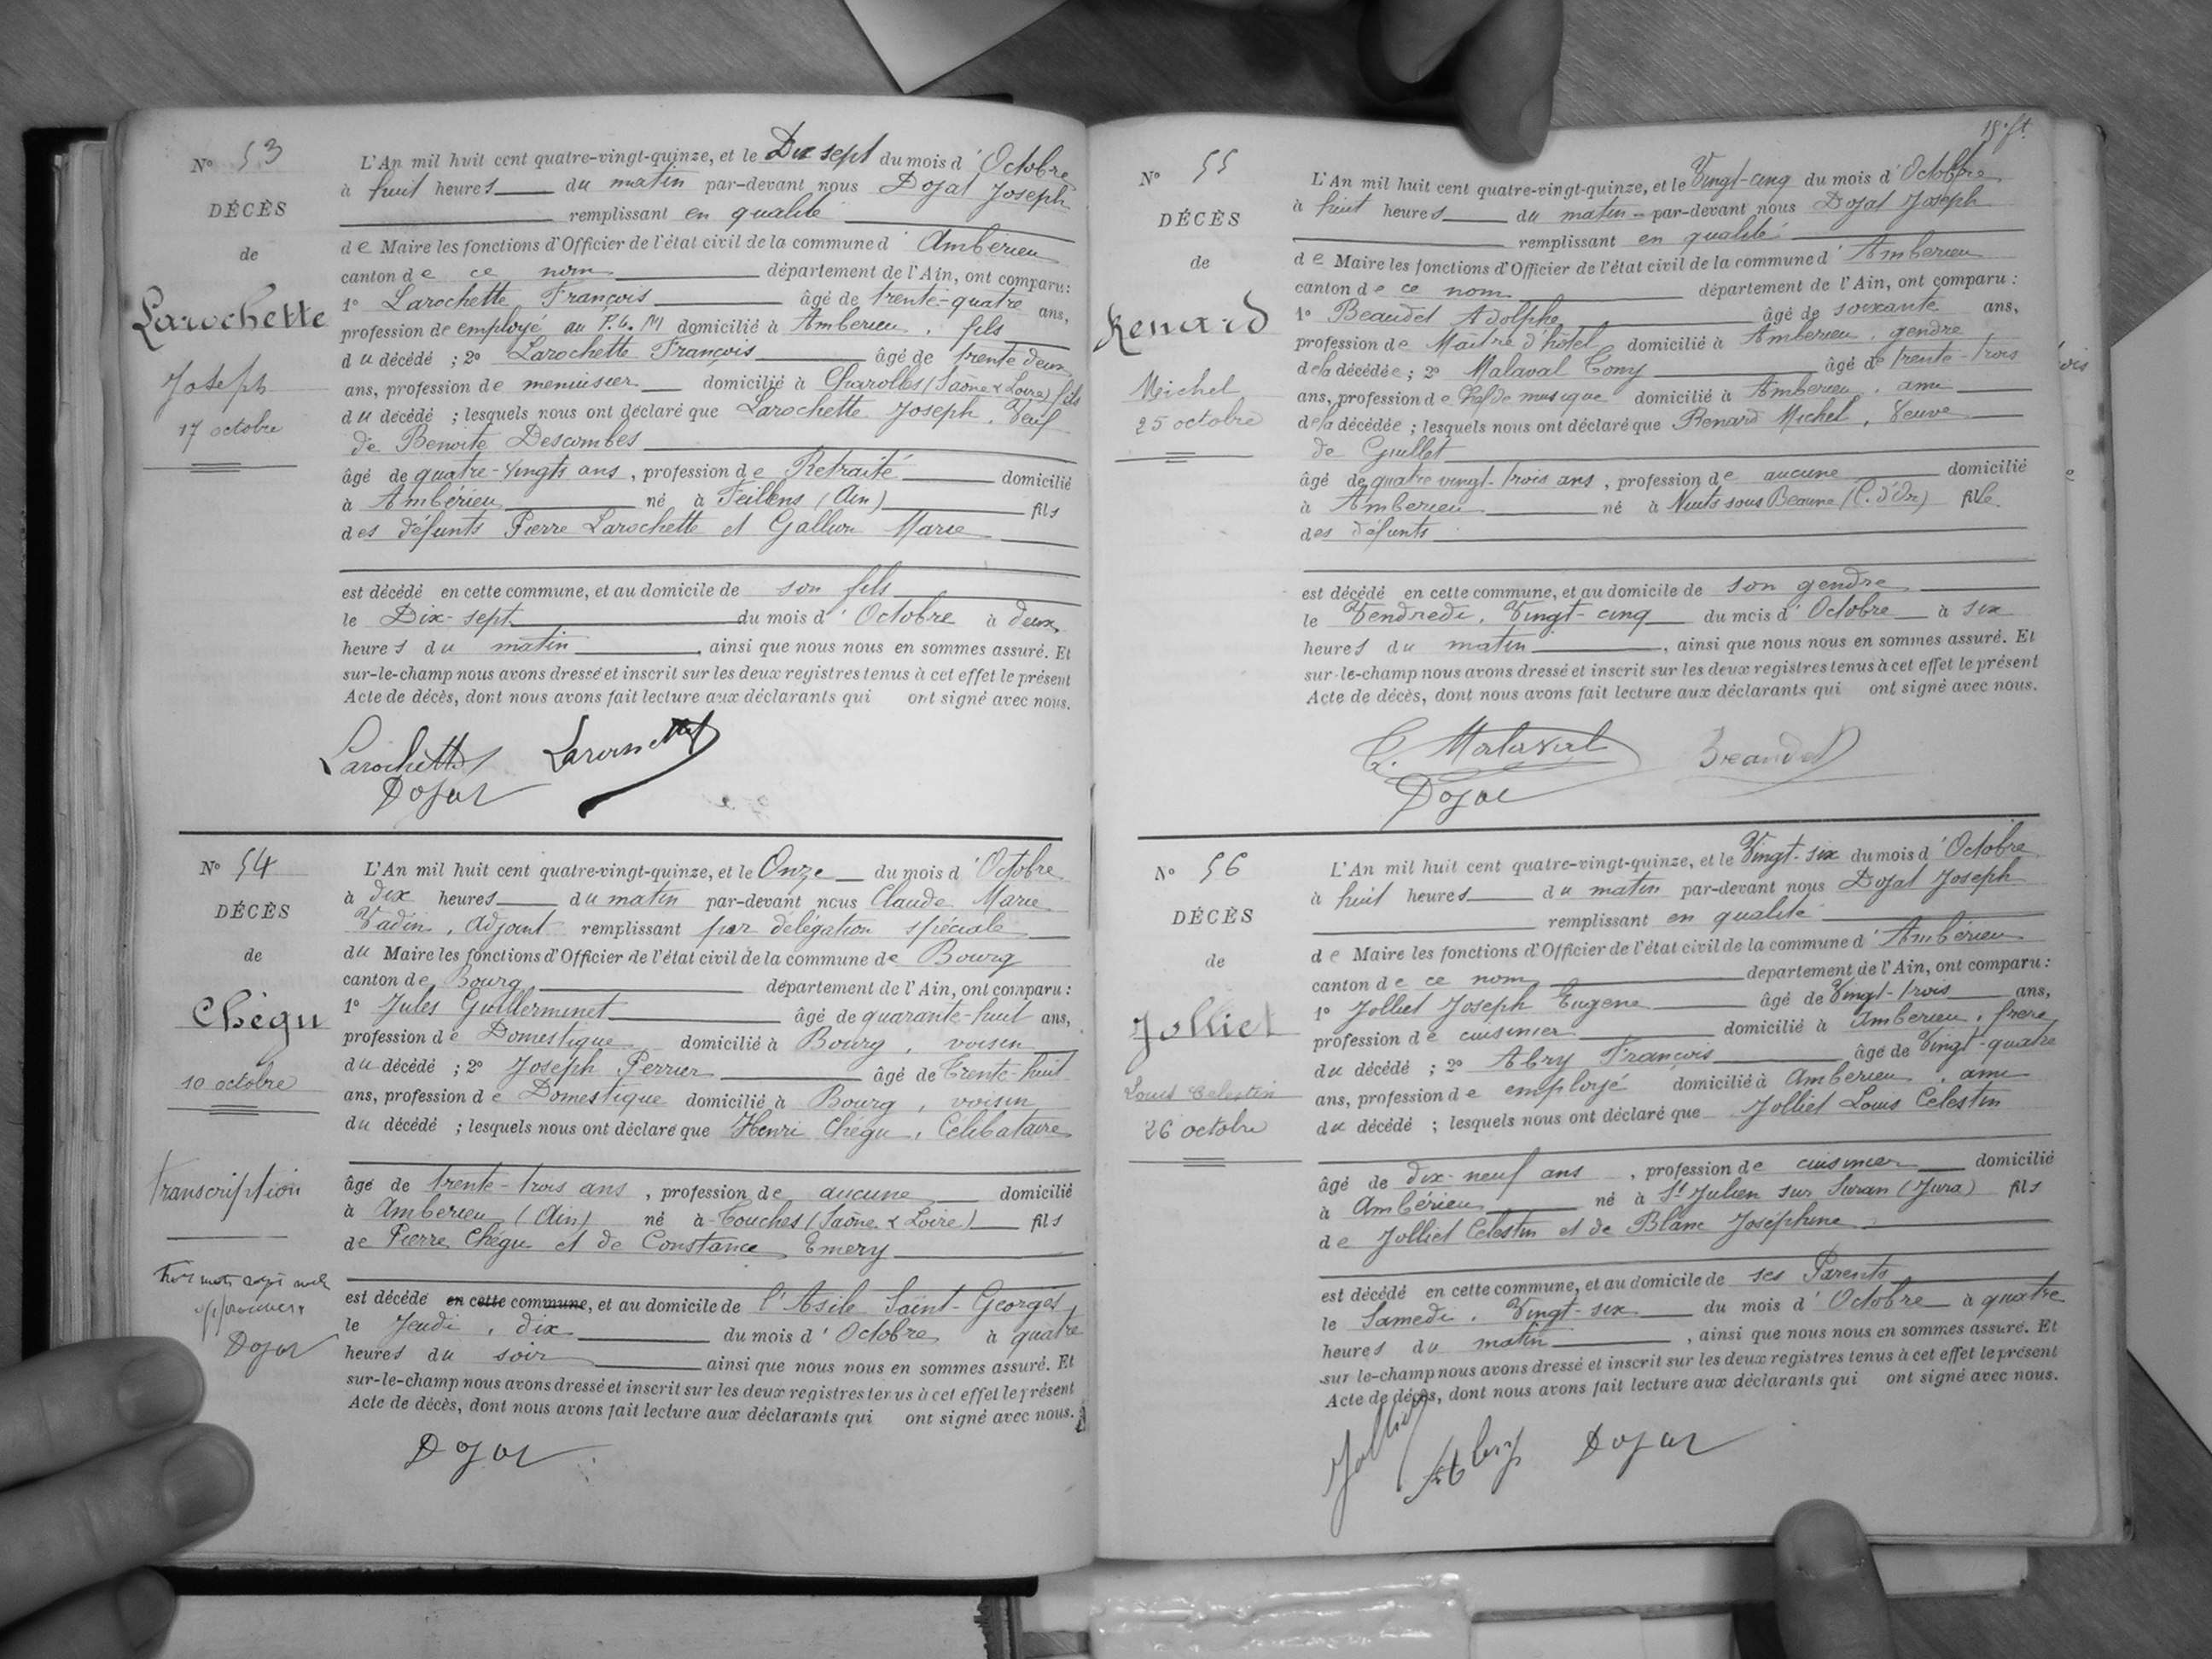 N° 53
DÉCÈS
de
Larochette
Joseph
17 octobre
L'An mil huit cent quatre-vingt-quinze, et le Dix sept du mois d'Octobre
à huit heures du matin par-devant nous Dojat Joseph
remplissant en qualité
de Maire les fonctions d'Officier de l'état civil de la commune d'Ambérieu
canton de ce nom département de l'Ain, ont comparu :
1° Larochette François âgé de trente-quatre ans,
profession de employé au P. L. M domicilié à Amberieu, fils
du décédé ; 2° Larochette François âgé de trente deux
ans, profession de menuisier domicilié à Charolles (Saône & Loire) fils
du décédé ; lesquels nous ont déclaré que Larochette Joseph, Veuf
de Benoite Descombes
âgé de quatre-vingts ans, profession de Retraité domicilié
à Ambérieu né à Feillens (Ain) fils
des défunts Pierre Larochette et Gallion Marie
est décédé en cette commune, et au domicile de son fils
le Dix-sept du mois d'Octobre à deux
heures du matin, ainsi que nous nous en sommes assuré. Et
sur-le-champ nous avons dressé et inscrit sur les deux registres tenus à cet effet le présent
Acte de décès, dont nous avons fait lecture aux déclarants qui ont signé avec nous.
Larochette Larochette
Dojat
N° 54
DÉCÈS
de
Chègu
10 octobre
transcription
Trois mots rayés nuls
approuvés
Dojat
L'An mil huit cent quatre-vingt-quinze, et le Onze du mois d'Octobre
à dix heures du matin par-devant nous Claude Marie
Vadin, Adjoint remplissant par délégation spéciale
du Maire les fonctions d'Officier de l'état civil de la commune de Bourg
canton de Bourg département de l'Ain, ont comparu :
1° Jules Guillerminet âgé de quarante-huit ans,
profession de Domestique domicilié à Bourg, voisin
du décédé ; 2° Joseph Perrier âgé de Trente-huit
ans, profession de Domestique domicilié à Bourg, voisin
du décédé ; lesquels nous ont déclaré que Henri Chègu, Célibataire
âgé de trente-trois ans, profession de aucune domicilié
à Amberieu (Ain) né à Touches (Saône & Loire) fils
de Pierre Chègu et de Constance Emery
est décédé en cette commune, et au domicile de l'Asile Saint-Georges,
le Jeudi, dix du mois d'Octobre à quatre
heures du soir ainsi que nous nous en sommes assuré. Et
sur-le-champ nous avons dressé et inscrit sur les deux registres tenus à cet effet le présent
Acte de décès, dont nous avons fait lecture aux déclarants qui ont signé avec nous.
Dojat
N° 55
DÉCÈS
de
Renard
Michel
25 octobre
L'An mil huit cent quatre-vingt-quinze, et le Vingt-cinq du mois d'Octobre
à huit heures du matin par-devant nous Dojat Joseph
remplissant en qualité
de Maire les fonctions d'Officier de l'état civil de la commune d'Amberieu
canton de ce nom département de l'Ain, ont comparu :
1° Beaudet Adolphe âgé de soixante ans,
profession de Maître d'hôtel domicilié à Amberieu, gendre
de la décédée ; 2° Malaval Tony âgé de trente-trois
ans, profession de Chef de musique domicilié à Amberieu, ami
de la décédée ; lesquels nous ont déclaré que Renard Michel, Veuve
de Guillet
âgé de quatre vingt-trois ans, profession de aucune domicilié
à Amberieu né à Nuits sous Beaune (C. d'Or) fille
des défunts
est décédé en cette commune, et au domicile de son gendre
le Vendredi, Vingt-cinq du mois d'Octobre à six
heures du matin, ainsi que nous nous en sommes assuré. Et
sur-le-champ nous avons dressé et inscrit sur les deux registres tenus à cet effet le présent
Acte de décès, dont nous avons fait lecture aux déclarants qui ont signé avec nous.
Malaval Beaudet
Dojat
N° 56
DÉCÈS
de
Jolliet
Louis Celestin
26 octobre
L'An mil huit cent quatre-vingt-quinze, et le Vingt-six du mois d'Octobre
à huit heures du matin par-devant nous Dojat Joseph
remplissant en qualité
de Maire les fonctions d'Officier de l'état civil de la commune d'Ambérieu
canton de ce nom département de l'Ain, ont comparu :
1° Jolliet Joseph Eugene âgé de Vingt-trois ans,
profession de cuisinier domicilié à Amberieu, frere
du décédé ; 2° Abry François âgé de Vingt-quatre
ans, profession de employé domicilié à Amberieu, ami
du décédé ; lesquels nous ont déclaré que Jolliet Louis Celestin
âgé de dix-neuf ans, profession de cuisinier domicilié
à Ambérieu né à St Julien sur Suran (Jura) fils
de Jolliet Celestin et de Blanc Joséphine
est décédé en cette commune, et au domicile de ses Parents
le Samedi, Vingt-six du mois d'Octobre à quatre
heures du matin, ainsi que nous nous en sommes assuré. Et
sur-le-champ nous avons dressé et inscrit sur les deux registres tenus à cet effet le présent
Acte de décès, dont nous avons fait lecture aux déclarants qui ont signé avec nous.
Jolliet Abry Dojat